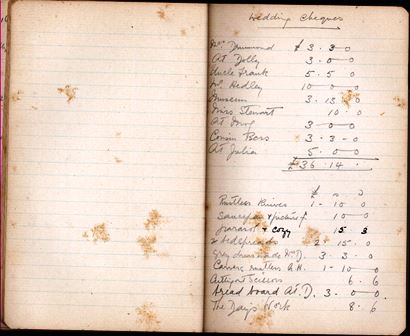 Wedding Cheques
Drummond £ 3 · 3 · 0
At Dolly 3 · 0 - 0
Uncle Frank 5 · 5 · 0
Hedley 10 · 0 - 0
Museum 3 · 13 · 0
Mrs Stewart 10 · 0
At 3 - 0 - 0
Cousin Bess 3 · 3 - 0
At Julia 5 · 0 0
£36 · 14 ·
£ s D
Rustless Knives 1 - 10 0
Saucepan + 10 0
+ cozy 15 3
2 bedspreads 2 · 15 · 0
Grey dressmade D. 3 · 3 · 0
Carvers rustless A.H. 1 - 10 0
Scissors 6 · 6
bread board At. D. 3 - 0 · 0
The Day's Work 8 · 6